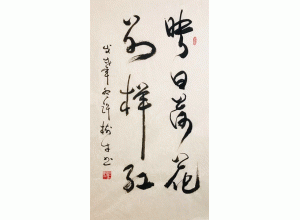 映日荷花
别样红
戊戌年
书